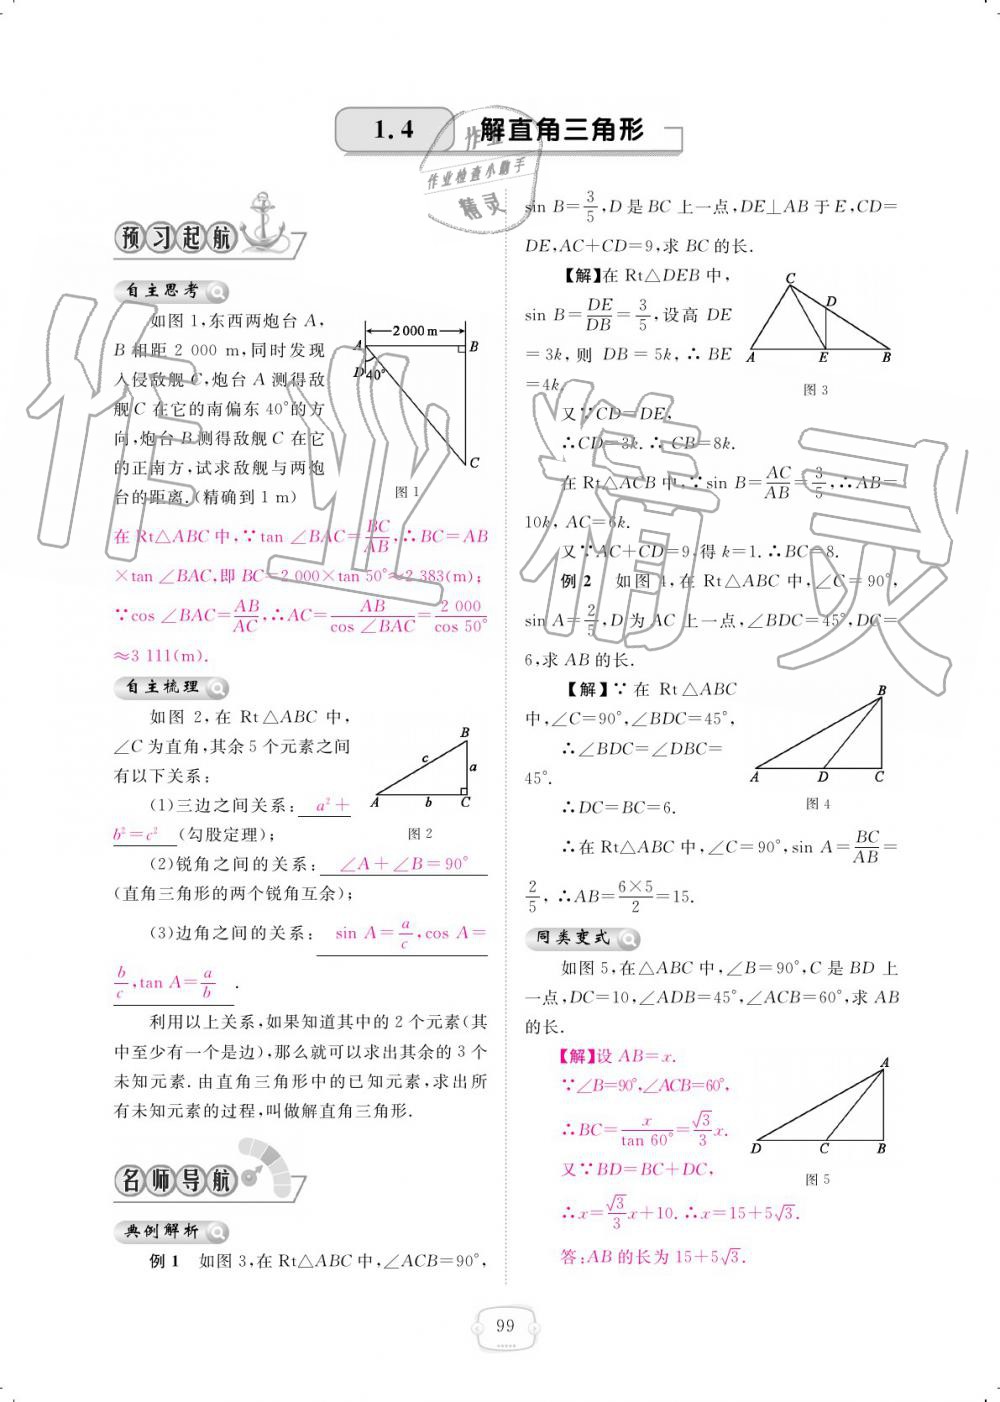 1.4 解直角三角形
预习起航
自主思考
如图1,东西两炮台 A,
B 相距 2 000 m,同时发现
入侵敌舰 C,炮台 A 测得敌
舰 C 在它的南偏东 40°的方
向,炮台 B 测得敌舰 C 在它
的正南方,试求敌舰与两炮
台的距离.(精确到 1 m)
2 000 m
A
B
D
40°
C
图 1
在 Rt△ABC 中,∵tan ∠BAC=BC/AB,∴BC=AB
×tan ∠BAC,即 BC=2 000×tan 50°≈2 383(m);
∵cos ∠BAC=AB/AC,∴AC=AB/cos ∠BAC=2 000/cos 50°
≈3 111(m).
自主梳理
如图 2,在 Rt△ABC 中,
∠C 为直角,其余 5 个元素之间
有以下关系:
(1)三边之间关系: a²+
b²=c² (勾股定理);
B
c
a
A
b
C
图 2
(2)锐角之间的关系: ∠A+∠B=90°
(直角三角形的两个锐角互余);
(3)边角之间的关系: sin A=a/c,cos A=
b/c,tan A=a/b .
利用以上关系,如果知道其中的 2 个元素(其
中至少有一个是边),那么就可以求出其余的 3 个
未知元素.由直角三角形中的已知元素,求出所
有未知元素的过程,叫做解直角三角形.
名师导航
典例解析
例 1 如图 3,在 Rt△ABC 中,∠ACB=90°,
sin B=3/5,D 是 BC 上一点,DE⊥AB 于 E,CD=
DE,AC+CD=9,求 BC 的长.
【解】在 Rt△DEB 中,
sin B=DE/DB=3/5,设高 DE
=3k,则 DB=5k,∴BE
=4k.
C
D
A
E
B
图 3
又∵CD=DE,
∴CD=3k.∴CB=8k.
在 Rt△ACB 中,∵sin B=AC/AB=3/5,∴AB=
10k,AC=6k.
又∵AC+CD=9,得 k=1.∴BC=8.
例 2 如图 4,在 Rt△ABC 中,∠C=90°,
sin A=2/5,D 为 AC 上一点,∠BDC=45°,DC=
6,求 AB 的长.
【解】∵在 Rt△ABC
中,∠C=90°,∠BDC=45°,
∴∠BDC=∠DBC=
45°.
∴DC=BC=6.
B
A
D
C
图 4
∴在 Rt△ABC 中,∠C=90°,sin A=BC/AB=
2/5,∴AB=6×5/2=15.
同类变式
如图 5,在△ABC 中,∠B=90°,C 是 BD 上
一点,DC=10,∠ADB=45°,∠ACB=60°,求 AB
的长.
【解】设 AB=x.
∵∠B=90°,∠ACB=60°,
∴BC=x/tan 60°=√3/3x.
又∵BD=BC+DC,
∴x=√3/3x+10.∴x=15+5√3.
答:AB 的长为 15+5√3.
A
D
C
B
图 5
99
作业
作业检查小助手
精灵
作业精灵